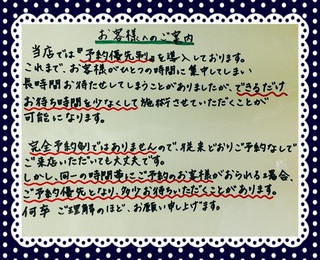 お客様へのご案内
当店では『予約優先制』を導入しております。
これまで、お客様がひとつの時間に集中してしまい
長時間お待たせしてしまうことがありましたが、できるだけ
お待ち時間を少なくして施術させていただくことが
可能になります。
完全予約制ではありませんので、従来どおりご予約なしで
ご来店いただいても大丈夫です。
しかし、同一の時間帯にご予約のお客様がおられる場合、
ご予約優先となり、多少お待ちいただくことがあります。
何卒 ご理解のほど、お願い申し上げます。